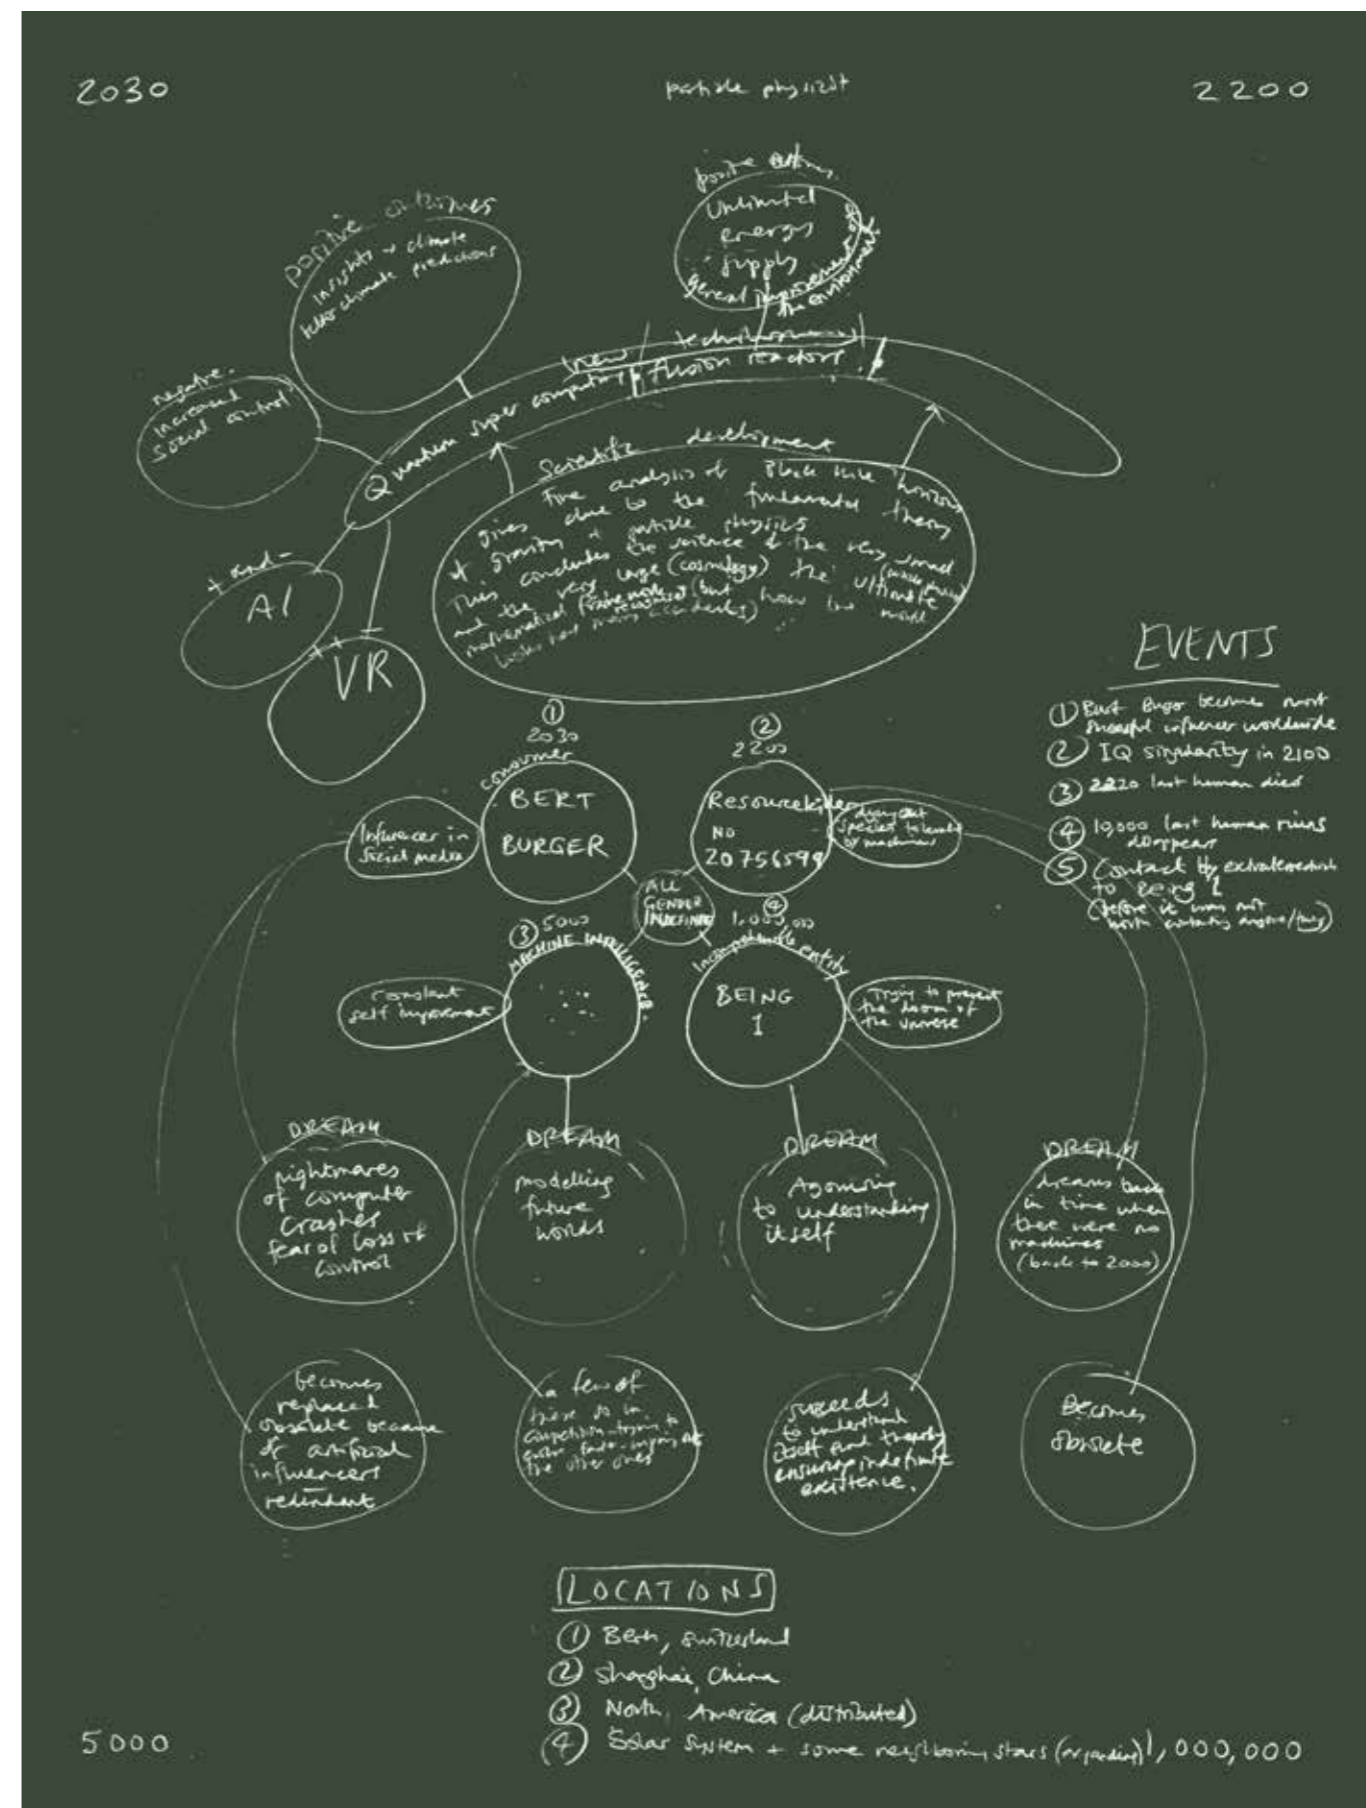 2030
particle physicist
2200
positive outcomes
Unlimited
energy
supply
general improvement of
the environment
positive outcomes
insights climate
better climate predictions
negative.
increased
social control
new technologies
Quantum super computing
fusion reactors
+ and -
AI
++
VR
Scientific development
Fine analysis of Black Hole horizons
gives clue to the fundamental theory
of gravity + particle physics
This concludes the science of the very small
(particle physics)
and the very large (cosmology) the ultimate
mathematical framework (but how the world
looks has many accidents)
recognised
...
EVENTS
① Bert Burger becomes most
successful influencer worldwide
② IQ singularity in 2100
③ 2220 last human dies
④ 10,000 last human ruins
disappear
⑤ Contact by extraterrestrials
to Being 1
(before it was not
worth contacting anyone/thing)
①
2030
consumer
BERT
BURGER
Influencer in
Social media
②
2200
Resourcekiller
NO
20756599
species tolerated
by machines
ALL
GENDER
INDEFINITE
③ 5000
MACHINE INTELLIGENCE
constant
self improvement
④
1,000,000
Incomprehensible entity
BEING
1
Trying to prevent
the doom of
the universe
DREAM
nightmares
of computer
crashes
fear of loss of
control
DREAM
modelling
future
worlds
DREAM
Agonising
to understanding
itself
DREAM
dreams back
in time when
there were no
machines
(back to 2000)
becomes
replaced
obsolete because
of artificial
influencers
redundant
a few of
these in
competition - trying to
evolve faster - wiping out
the other ones
succeeds
to understand
itself and thereby
ensuring indefinite
existence.
Becomes
obsolete
LOCATIONS
① Bern, Switzerland
② Shanghai, China
③ North, America (distributed)
④ Solar System + some neighboring stars (expanding)
5000
1,000,000